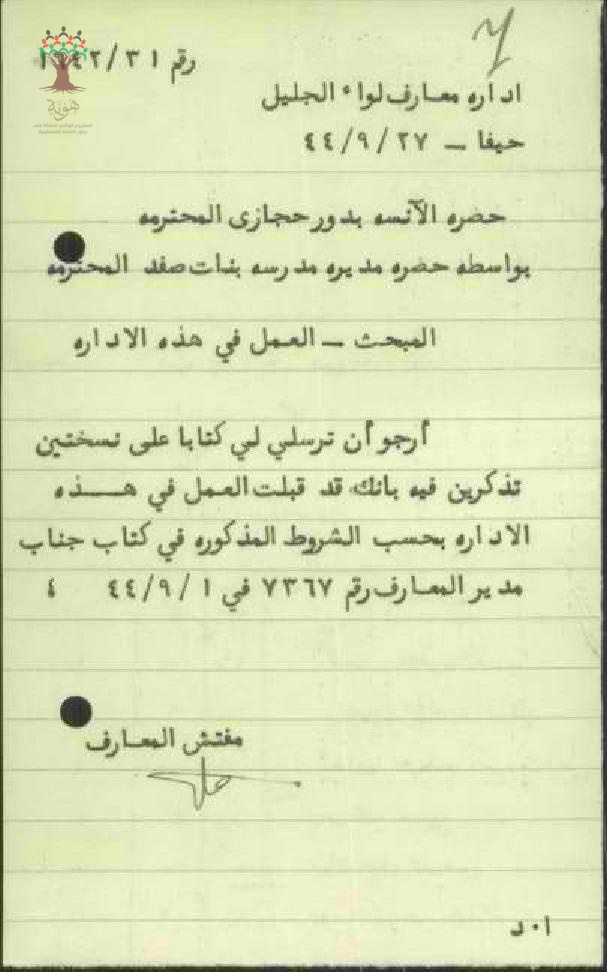 رقم ١٦٤٢/٣١
اداره معارف لواء الجليل
حيفا ــ ٢٧ /٩ /٤٤
حضره الآنسه بدور حجازى المحترمه
بواسطه حضره مديره مدرسه بنات صفد المحترمه
المبحث ــ العمل في هذه الاداره
أرجو أن ترسلي لي كتابا على نسختين
تذكرين فيه بانك قد قبلت العمل في هـــذه
الاداره بحسب الشروط المذكوره في كتاب جناب
مدير المعارف رقم ٧٣٦٧ في ١ /٩ /٤٤ ؛
مفتش المعارف
ا٠د
هوية